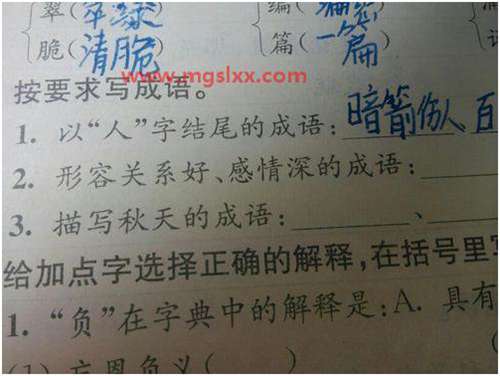 翠(翠绿) 编(
脆(清脆) 篇(一篇)
www.mgslxx.com
按要求写成语。
1. 以“人”字结尾的成语:暗箭伤人 百
2. 形容关系好、感情深的成语:
3. 描写秋天的成语: 、
给加点字选择正确的解释,在括号里写
1. “负”在字典中的解释是:A. 具有
(1) 忘恩负义( )